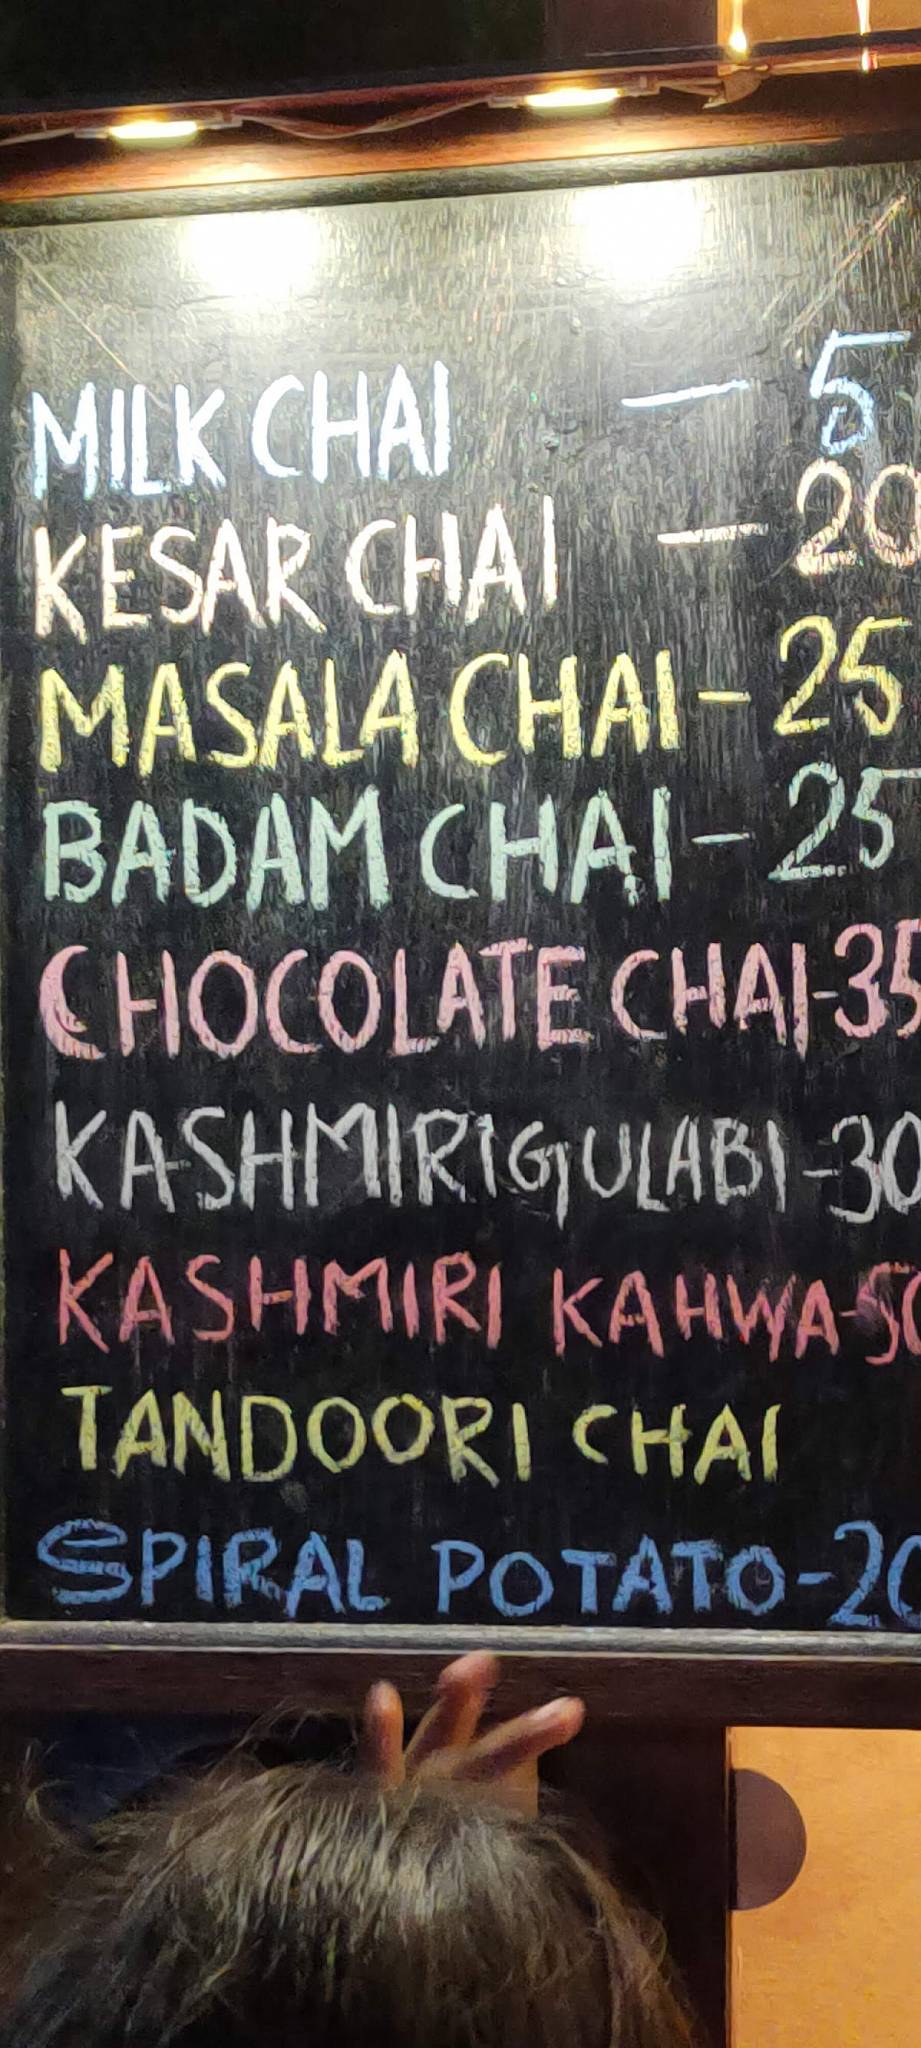 MILK CHAI — 5
KESAR CHAI — 20
MASALA CHAI - 25
BADAM CHAI - 25
CHOCOLATE CHAI-35
KASHMIRI GULABI -30
KASHMIRI KAHWA-50
TANDOORI CHAI
SPIRAL POTATO-20